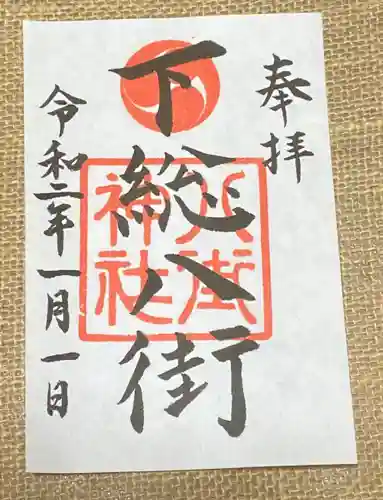 奉拝
下総八街
八街神社
令和二年一月一日